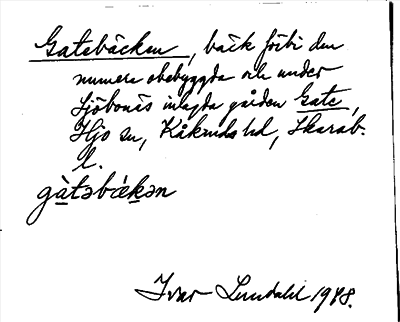 Gatebäcken, bäck förbi den
numera obebyggda och under
Sjöbonäs inlagda gården Gate,
Hjo sn, Kåkinds hd, Skarab.
l.
gàtəbäkən
Ivar Lundahl 1948.